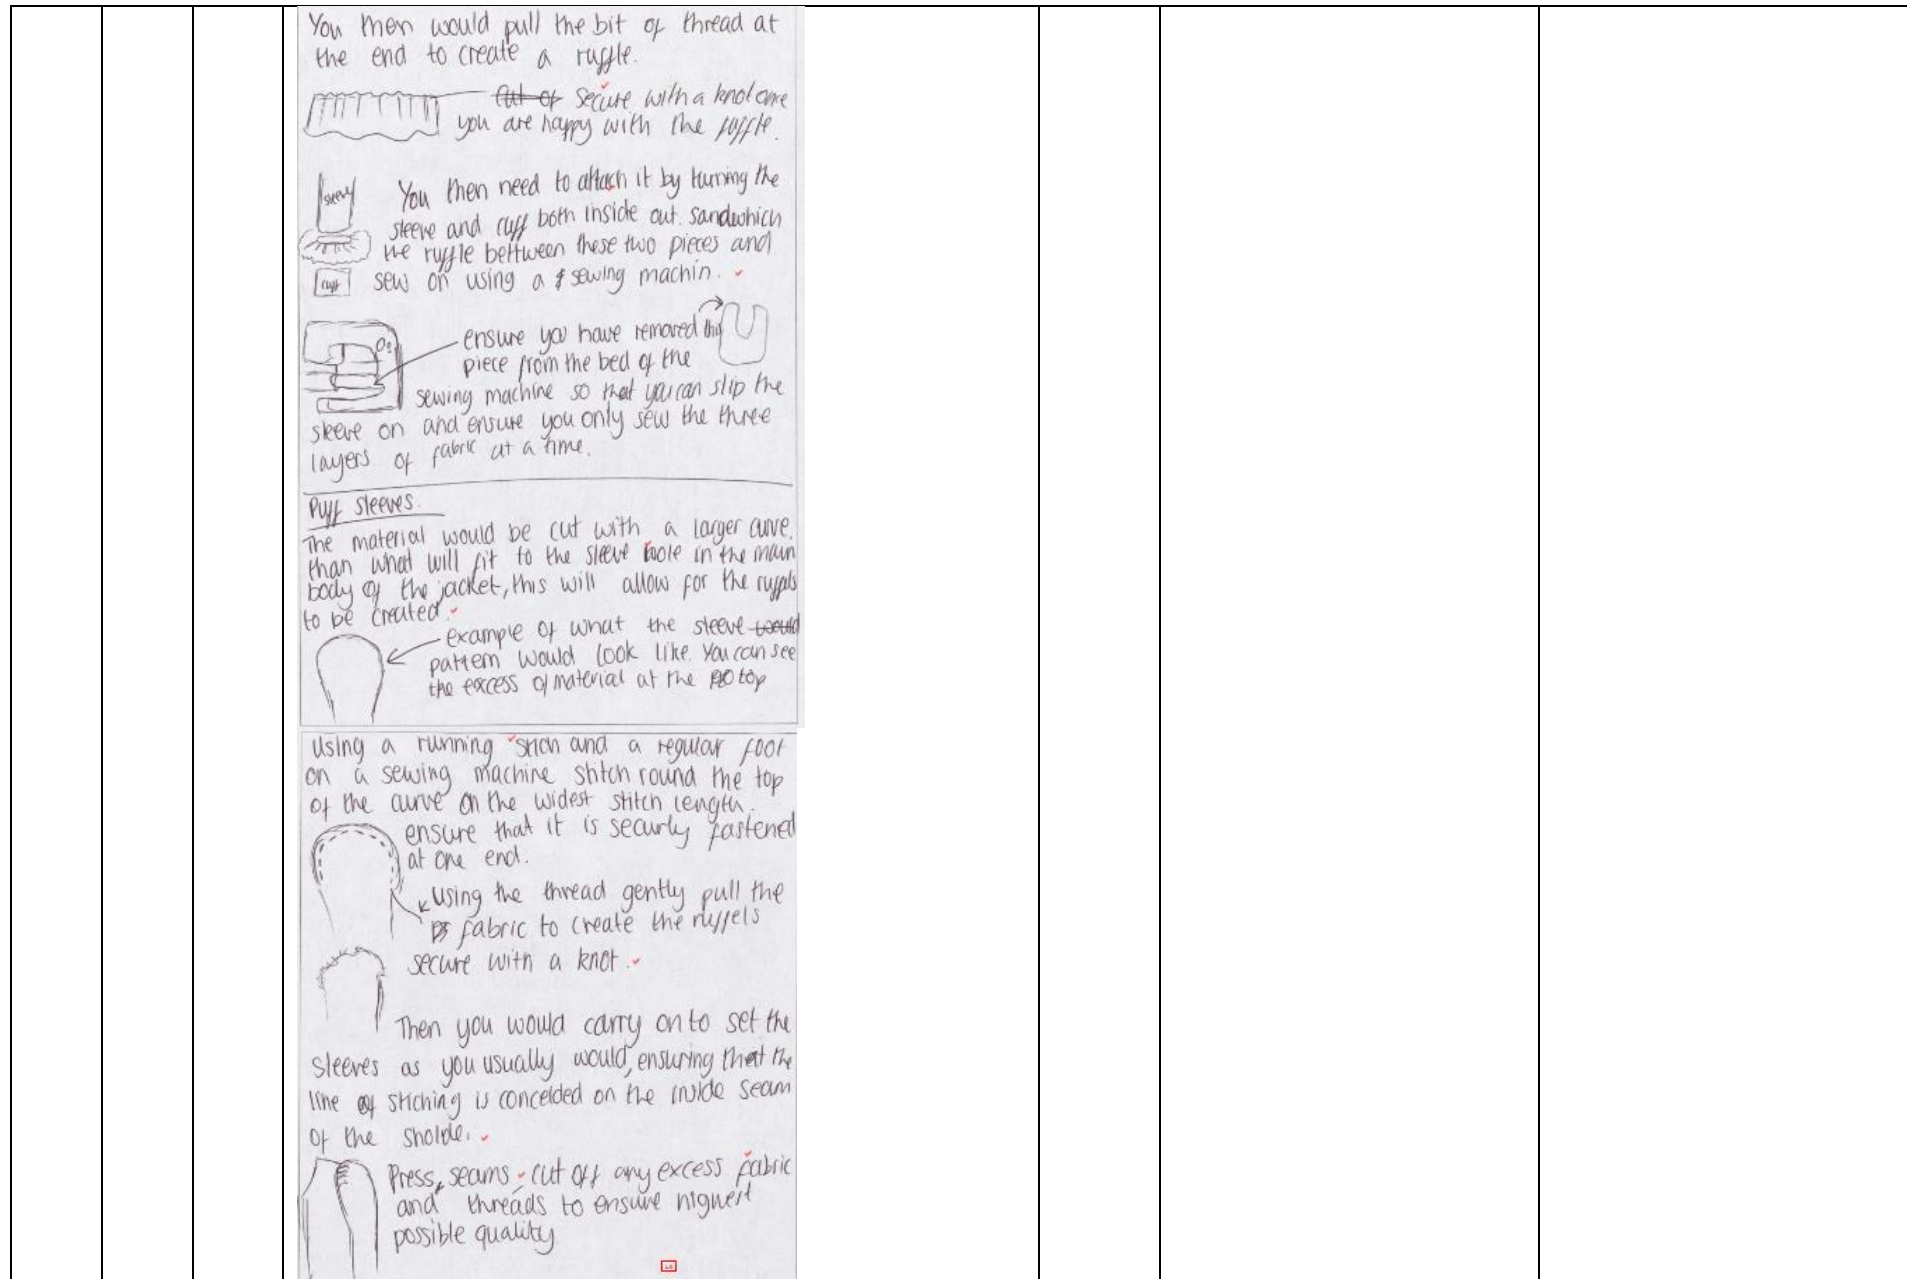 You then would pull the bit of thread at
the end to create a ruffle.
Cut of secure with a knot once
you are happy with the ruffle.
sleeve
You then need to attach it by turning the
sleeve and cuff both inside out. sandwhich
the ruffle bettween these two pieces and
cuff
sew on using a sewing machin.
ensure you have removed this
piece from the bed of the
sewing machine so that you can slip the
sleeve on and ensure you only sew the three
layers of fabric at a time.
Puff sleeves.
The material would be cut with a larger curve.
than what will fit to the sleeve hole in the main
body of the jacket, this will allow for the ruffels
to be created.
example of what the sleeve would
pattern would look like. You can see
the excess of material at the top
Using a running stich and a regular foot
on a sewing machine stitch round the top
of the curve on the widest stitch length.
ensure that it is securly fastened
at one end.
Using the thread gently pull the
fabric to create the ruffels
secure with a knot.
Then you would carry on to set the
sleeves as you usually would, ensuring that the
line of stiching is concelded on the inside seam
of the sholde.
Press seams cut off any excess fabric
and threads to ensure highest
possible quality